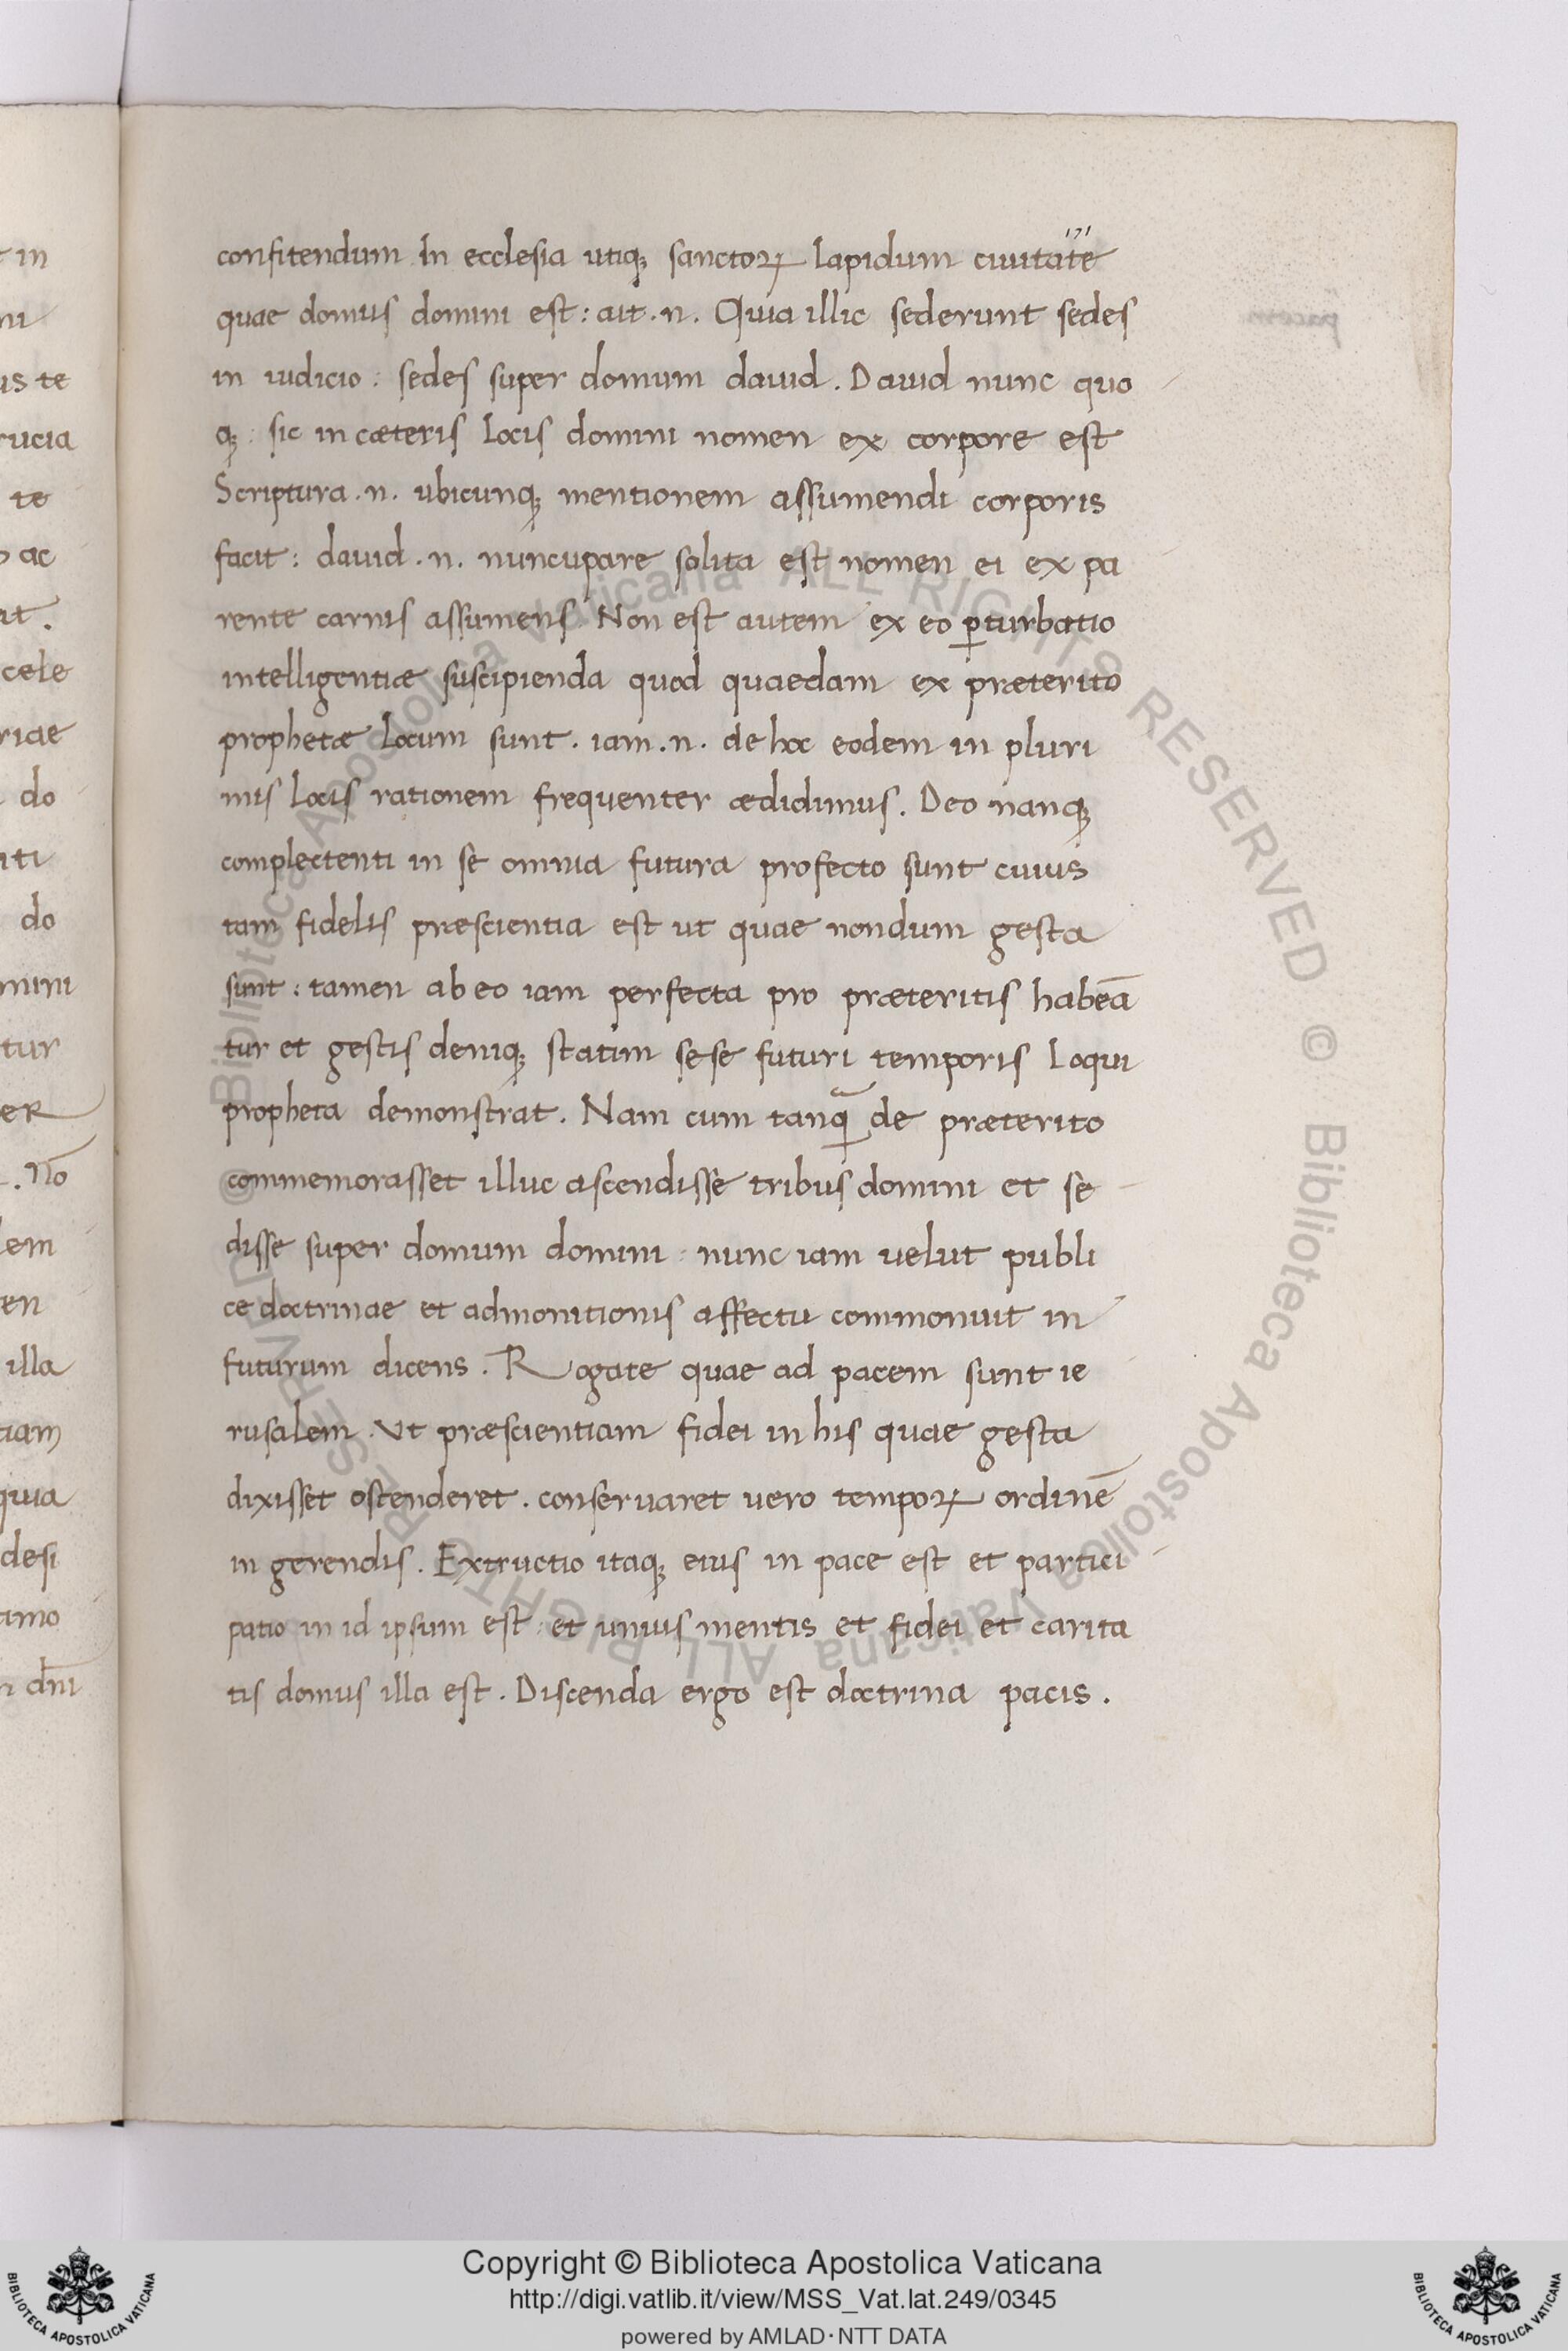 confitendum In ecclesia utiqꝫ sanctoꝝ lapidum ciuitate
quae domus domini est: ait .n. Quia illic sederunt sedes
in iudicio: sedes super domum dauid. Dauid nunc quo
qꝫ: sic in cæteris locis domini nomen ex corpore est
Scriptura .n. ubicunqꝫ mentionem assumendi corporis
facit: dauid .n. nuncupare solita est nomen ei ex pa
rente carnis assumens. Non est autem ex eo ꝑturbatio
intelligentiæ suscipienda quod quaedam ex præterito
prophetæ locum sunt. iam .n. de hoc eodem in pluri
mis locis rationem frequenter ædidimus. Deo nanqꝫ
complectenti in se omnia futura profecto sunt cuius
tam fidelis præscientia est ut quae nondum gesta
sunt: tamen ab eo iam perfecta pro præteritis habeā
tur et gestis deniqꝫ statim sese futuri temporis loqui
propheta demonstrat. Nam cum tanꝙ̃ de præterito
commemorasset illuc ascendisse tribus domini et se
disse super domum domini: nunc iam uelut publi
ce doctrinae et admonitionis affectu commonuit in
futurum dicens. Rogate quae ad pacem sunt ie
rusalem. Ut præscientiam fidei in his quae gesta
dixisset ostenderet. conseruaret uero tempoꝝ ordinē
in gerendis. Extructio itaqꝫ eius in pace est et partici
patio in id ipsum est: et unius mentis et fidei et carita
tis domus illa est. Discenda ergo est doctrina pacis.
Copyright © Biblioteca Apostolica Vaticana
http://digi.vatlib.it/view/MSS_Vat.lat.249/0345
powered by AMLAD·NTT DATA